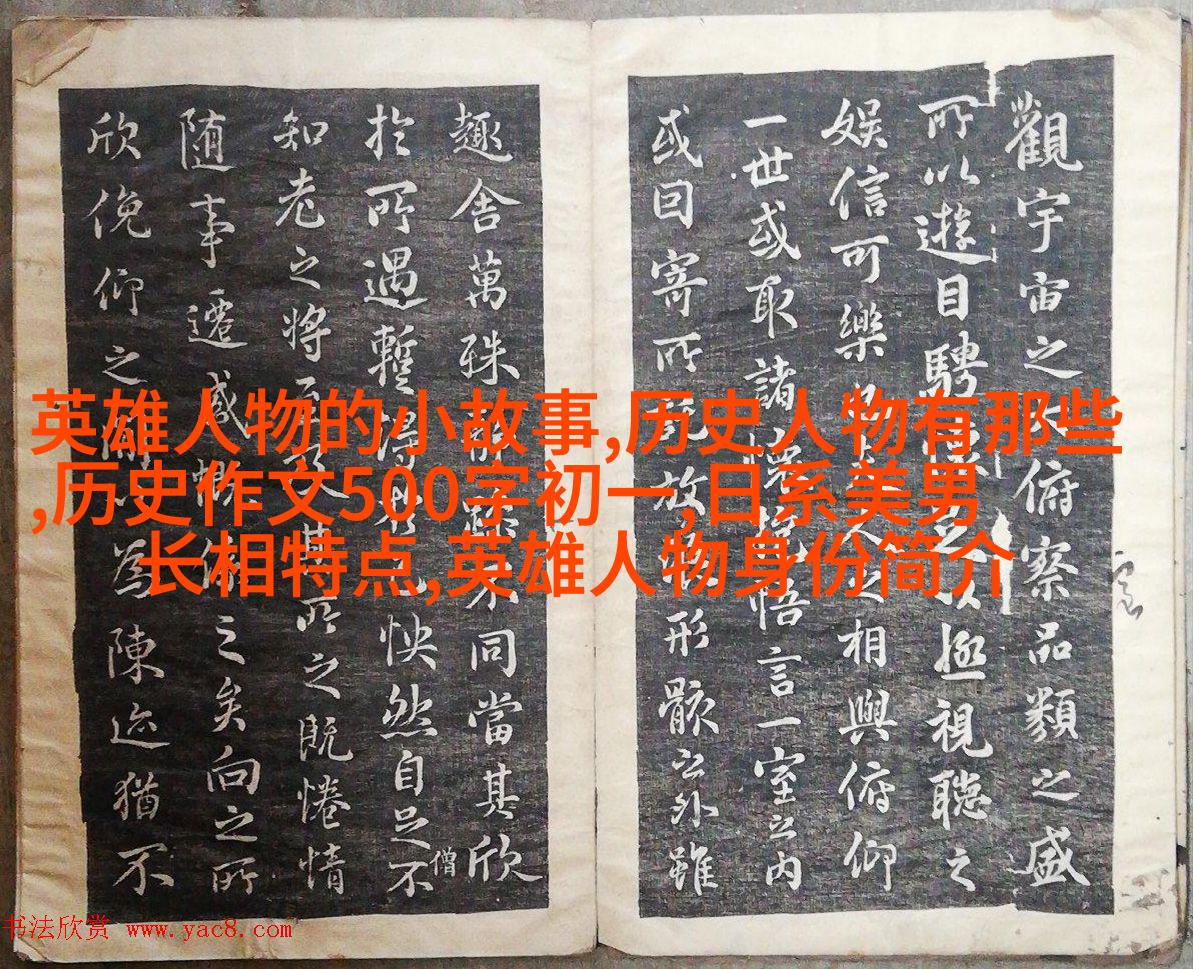 觀宇宙之俯察品類之盛
所以遊目騁極視聽之
娛信可樂之相與俯仰
一世或取諸悟言一室之內
或因寄所放形骸之外雖
趣舍萬殊不同當其欣
於所遇暫得怏然自足不
僧
知老之將所之既惓情
隨事遷感之矣向之所
欣俛仰之為陳迹猶不
英雄人物的小故事,历史人物有那些
,历史作文500字初一,日系美男
长相特点,英雄人物身份简介
书法欣赏 www.yac8.com